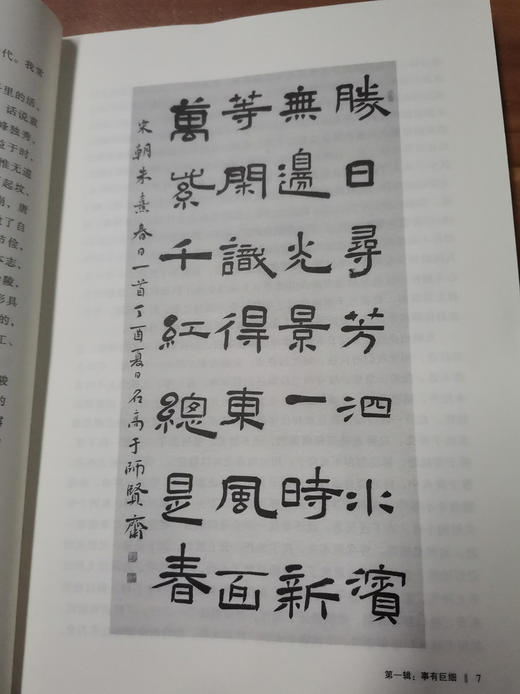 勝日尋芳泗水濱
無邊光景一時新
等閑識得東風面
萬紫千紅總是春
宋朝朱熹春日一首丁酉夏日石高于師賢齋
代。我常
里的活，
话说袁
峰独秀，
于时，
惟无道
起坟，
唐
了自
节俭，
志，
陵
形具
的，
工、
骏
的
第一辑：事有巨细 ‖ 7